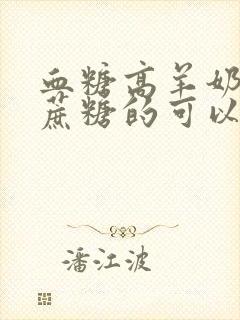 血糖高羊奶
蔗糖的可以
潘江波